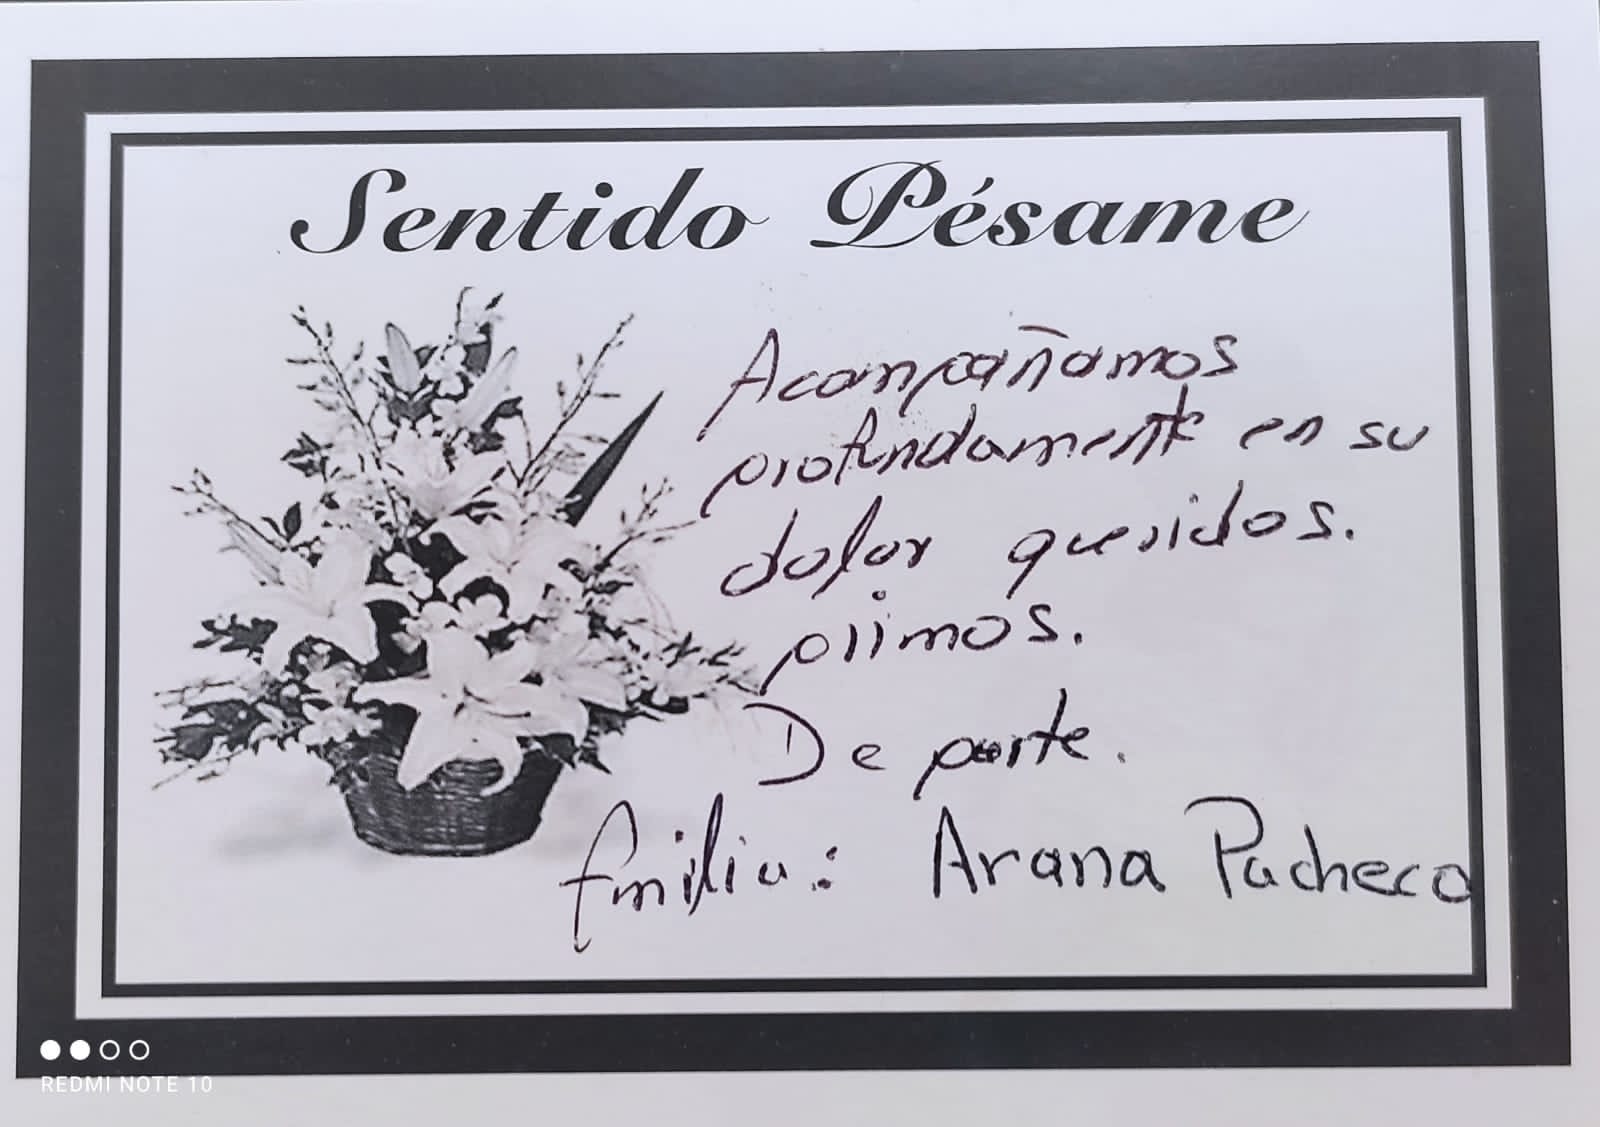 Sentido Pésame
Acompañamos
profundamente en su
dolor queridos.
primos.
De parte.
Familia: Arana Pacheco
REDMI NOTE 10